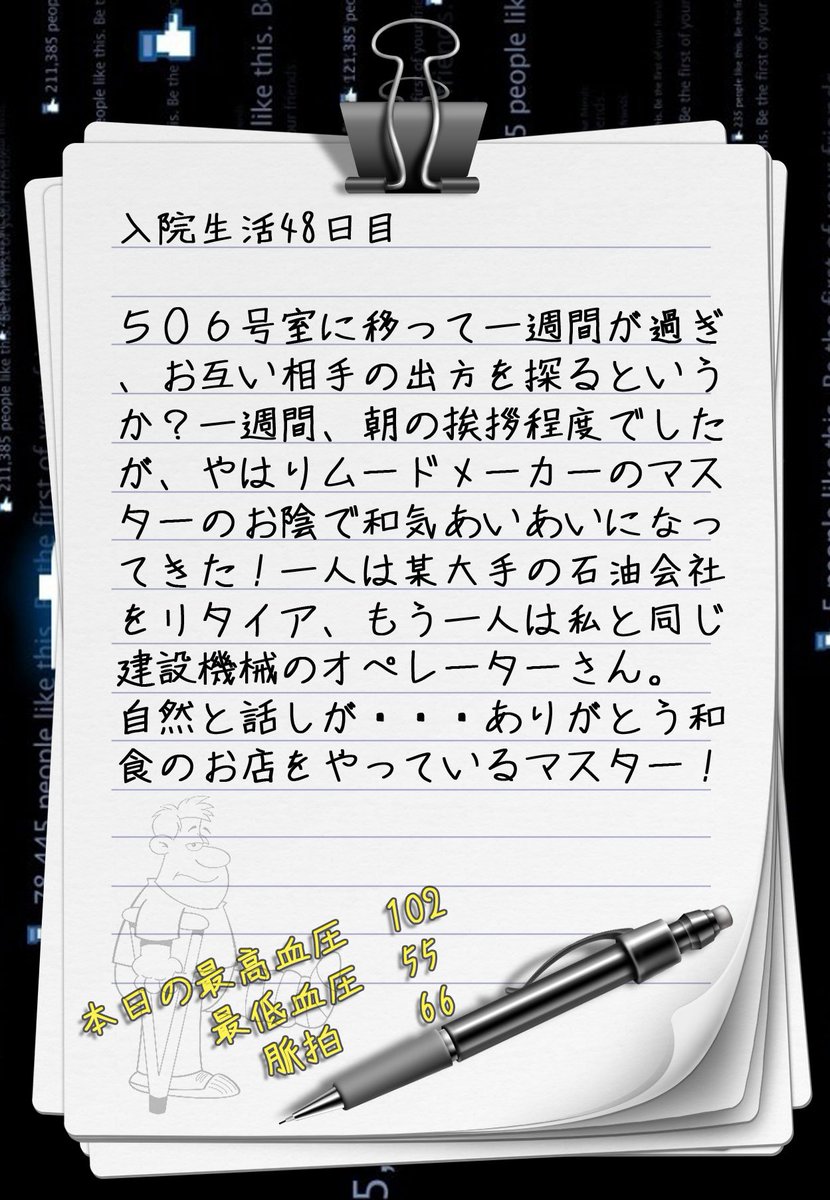 入院生活48日目
５０６号室に移って一週間が過ぎ
、お互い相手の出方を探るという
か？一週間、朝の挨拶程度でした
が、やはりムードメーカーのマス
ターのお陰で和気あいあいになっ
てきた！一人は某大手の石油会社
をリタイア、もう一人は私と同じ
建設機械のオペレーターさん。
自然と話しが・・・ありがとう和
食のお店をやっているマスター！
本日の最高血圧 102
最低血圧 55
脈拍 66
211,385 people like this. Be the
like this. Be
121,385
5 people like
235 people like this. Be the first of your
211,385 people like this
78,445 people like this. Be the first of